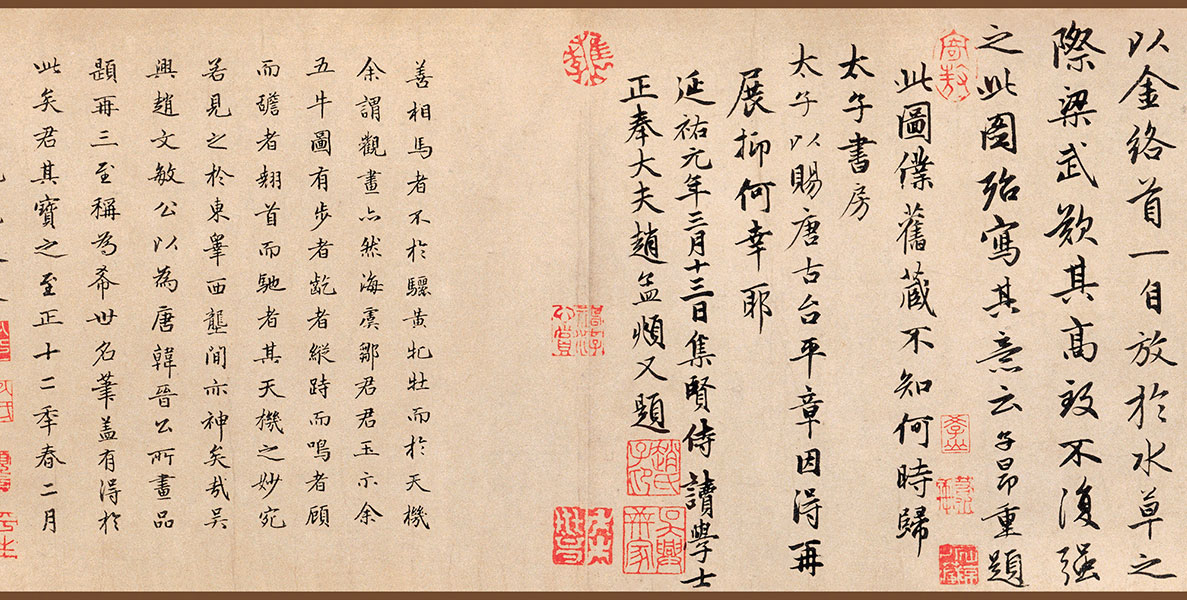 以金絡首一自放於水草之
際梁武歎其高致不復强
之此圖殆寫其意云子昂重題
此圖僕舊藏不知何時歸
太子書房
太子以賜唐古台平章因得再
展抑何幸耶
延祐元年三月十三日集賢侍讀學士
正奉大夫趙孟頫又題
善相馬者不於驪黄牝牡而於天機
余謂觀畫亦然海虞鄒君君玉示余
五牛圖有步者齕者縱跱而鳴者顧
而䑛者翹首而馳者其天機之妙宛
若見之於東睪西壟間亦神矣哉吴
興趙文敏公以為唐韓晉公所畫品
題再三至稱為希世名筆盖有得於
此矣君其寶之至正十二季春二月